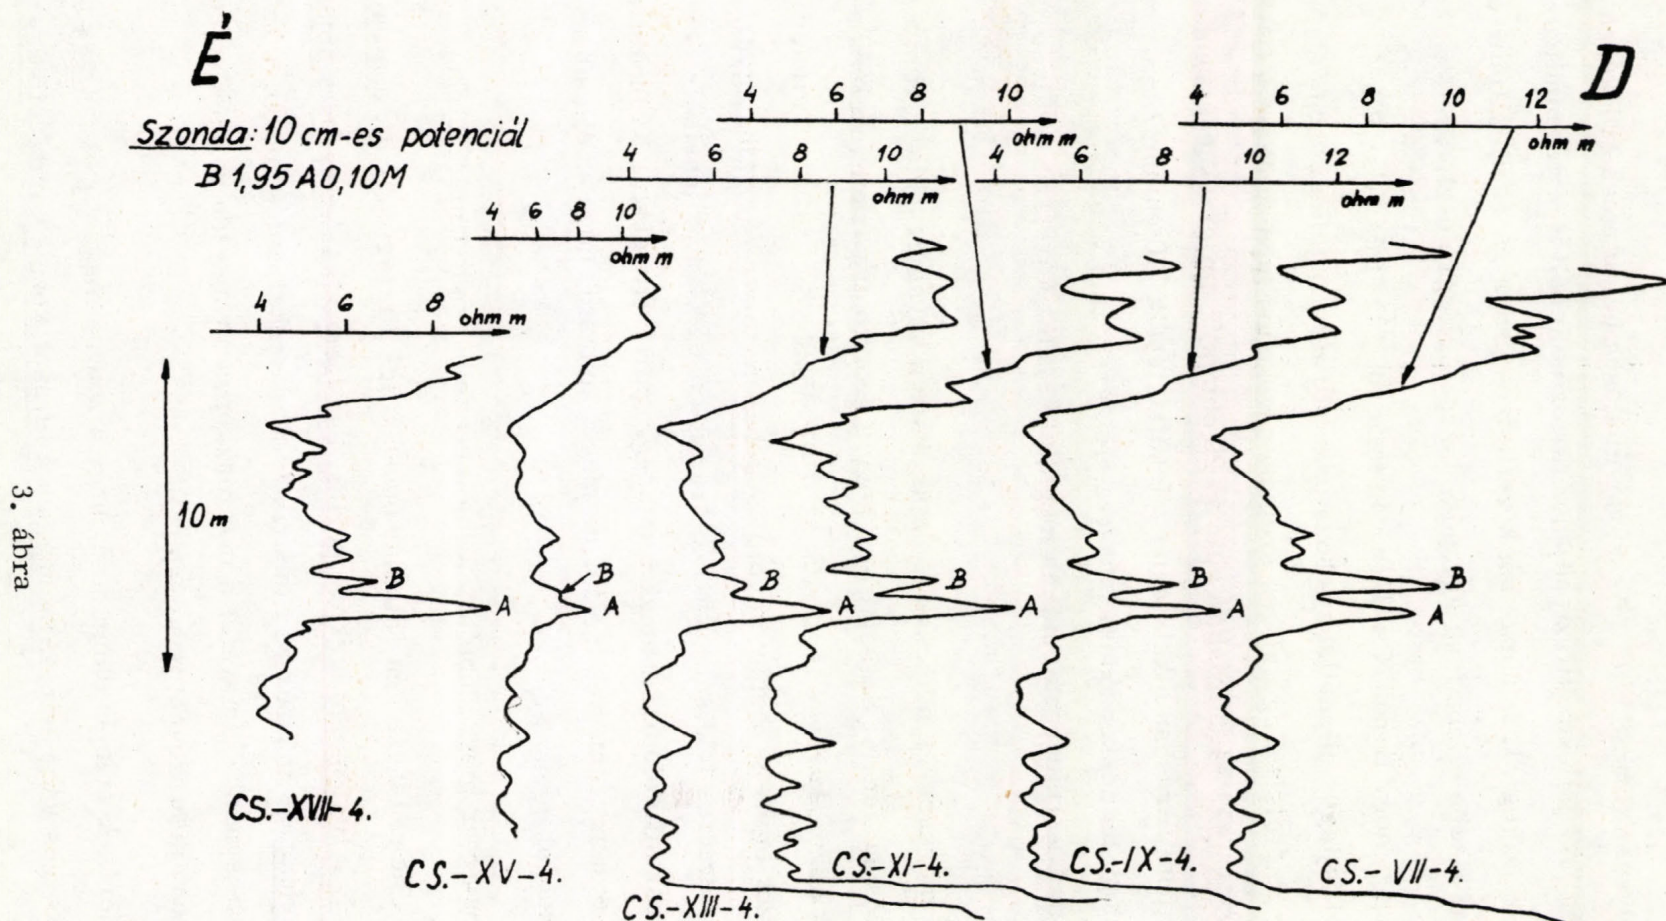 É
D
Szonda: 10 cm-es potenciál
B 1,95 A 0,10 M
4 6 8 10
ohm m
4 6 8 10 12
ohm m
4 6 8 10
ohm m
4 6 8 10 12
ohm m
4 6 8 10
ohm m
4 6 8
ohm m
10 m
B
A
B
A
B
A
B
A
B
A
B
A
CS.-XVII-4.
CS.-XV-4.
CS.-XIII-4.
CS.-XI-4.
CS.-IX-4.
CS.-VII-4.
3. ábra